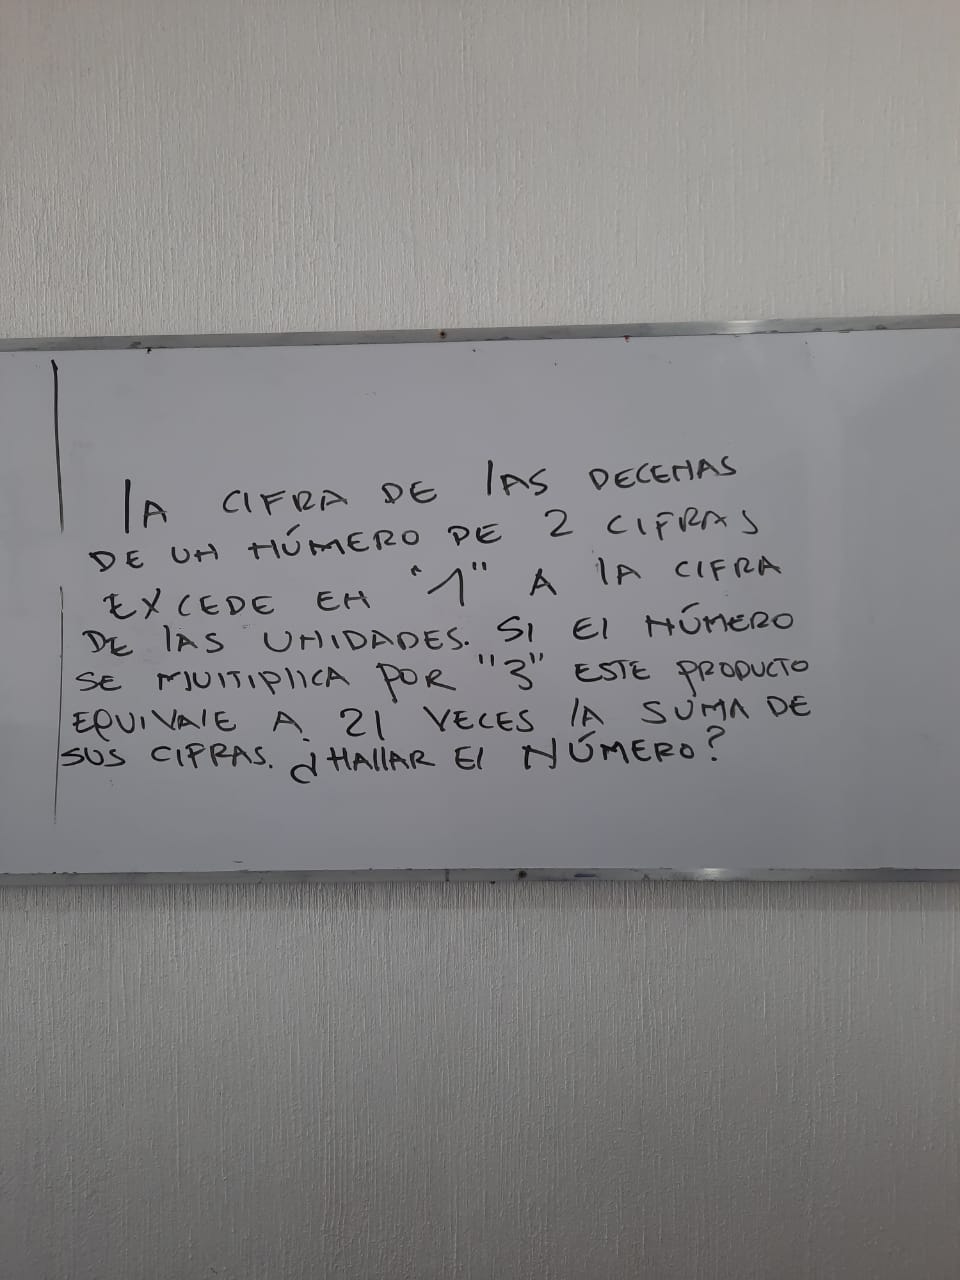 LA CIFRA DE LAS DECENAS
DE UN NÚMERO DE 2 CIFRAS
EXCEDE EN "1" A LA CIFRA
DE LAS UNIDADES. SI EL NÚMERO
SE MULTIPLICA POR "3" ESTE PRODUCTO
EQUIVALE A 21 VECES LA SUMA DE
SUS CIFRAS. ¿HALLAR EL NÚMERO?